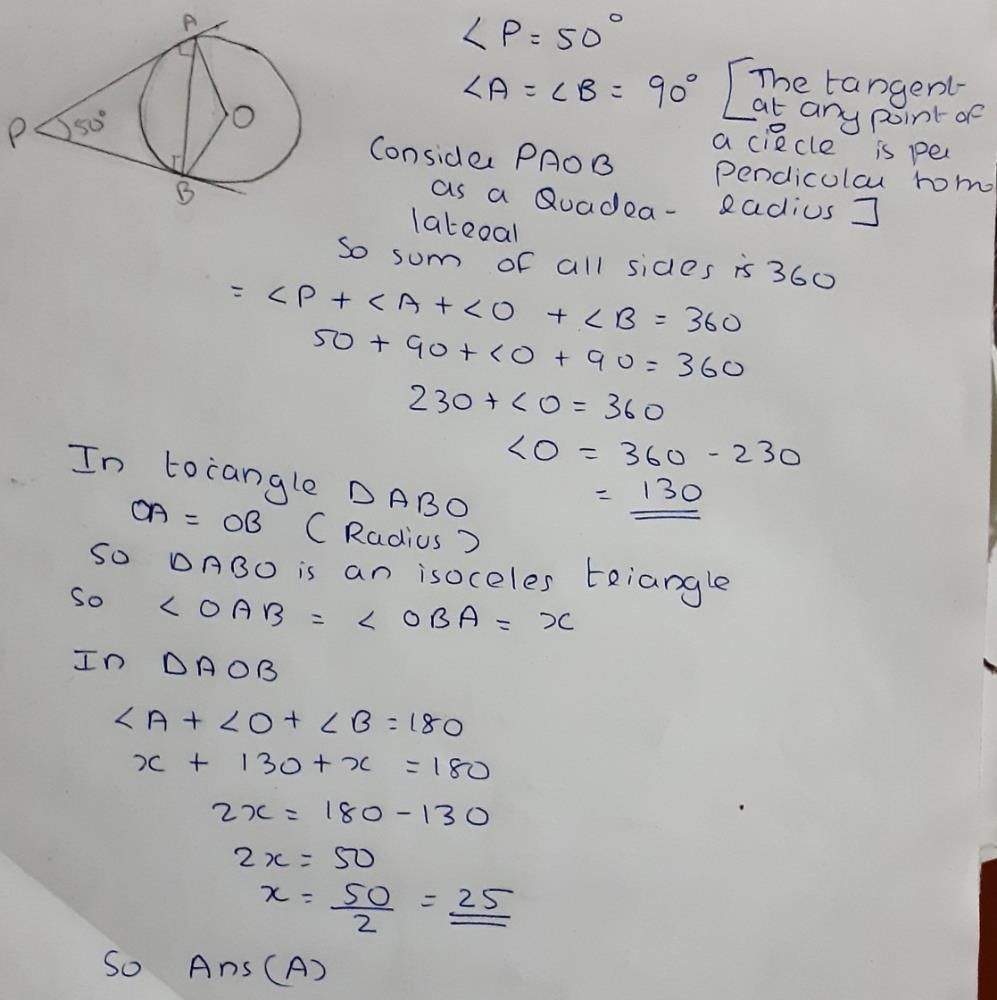 A
P 50° O
B
<P = 50°
<A = <B = 90° [The tangent
at any point of
a circle is per
pendicular to
radius]
Consider PAOB
as a Quadra-
lateral
So sum of all sides is 360
= <P + <A + <O + <B = 360
50 + 90 + <O + 90 = 360
230 + <O = 360
<O = 360 - 230
= 130
In triangle DABO
OA = OB (Radius)
So DABO is an isoceles triangle
So < OAB = < OBA = x
In DAOB
<A + <O + <B = 180
x + 130 + x = 180
2x = 180 - 130
2x = 50
x = 50/2 = 25
So Ans (A)